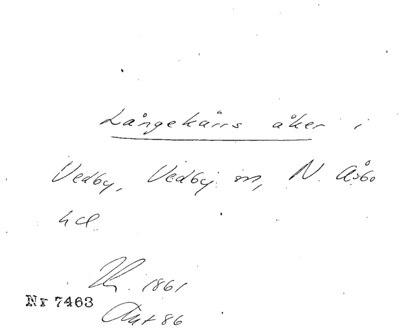 Långekärrs åker i
Vedby, Vedby sn, N. Åsbo
hd
1861
Nr 7463
Akt 86